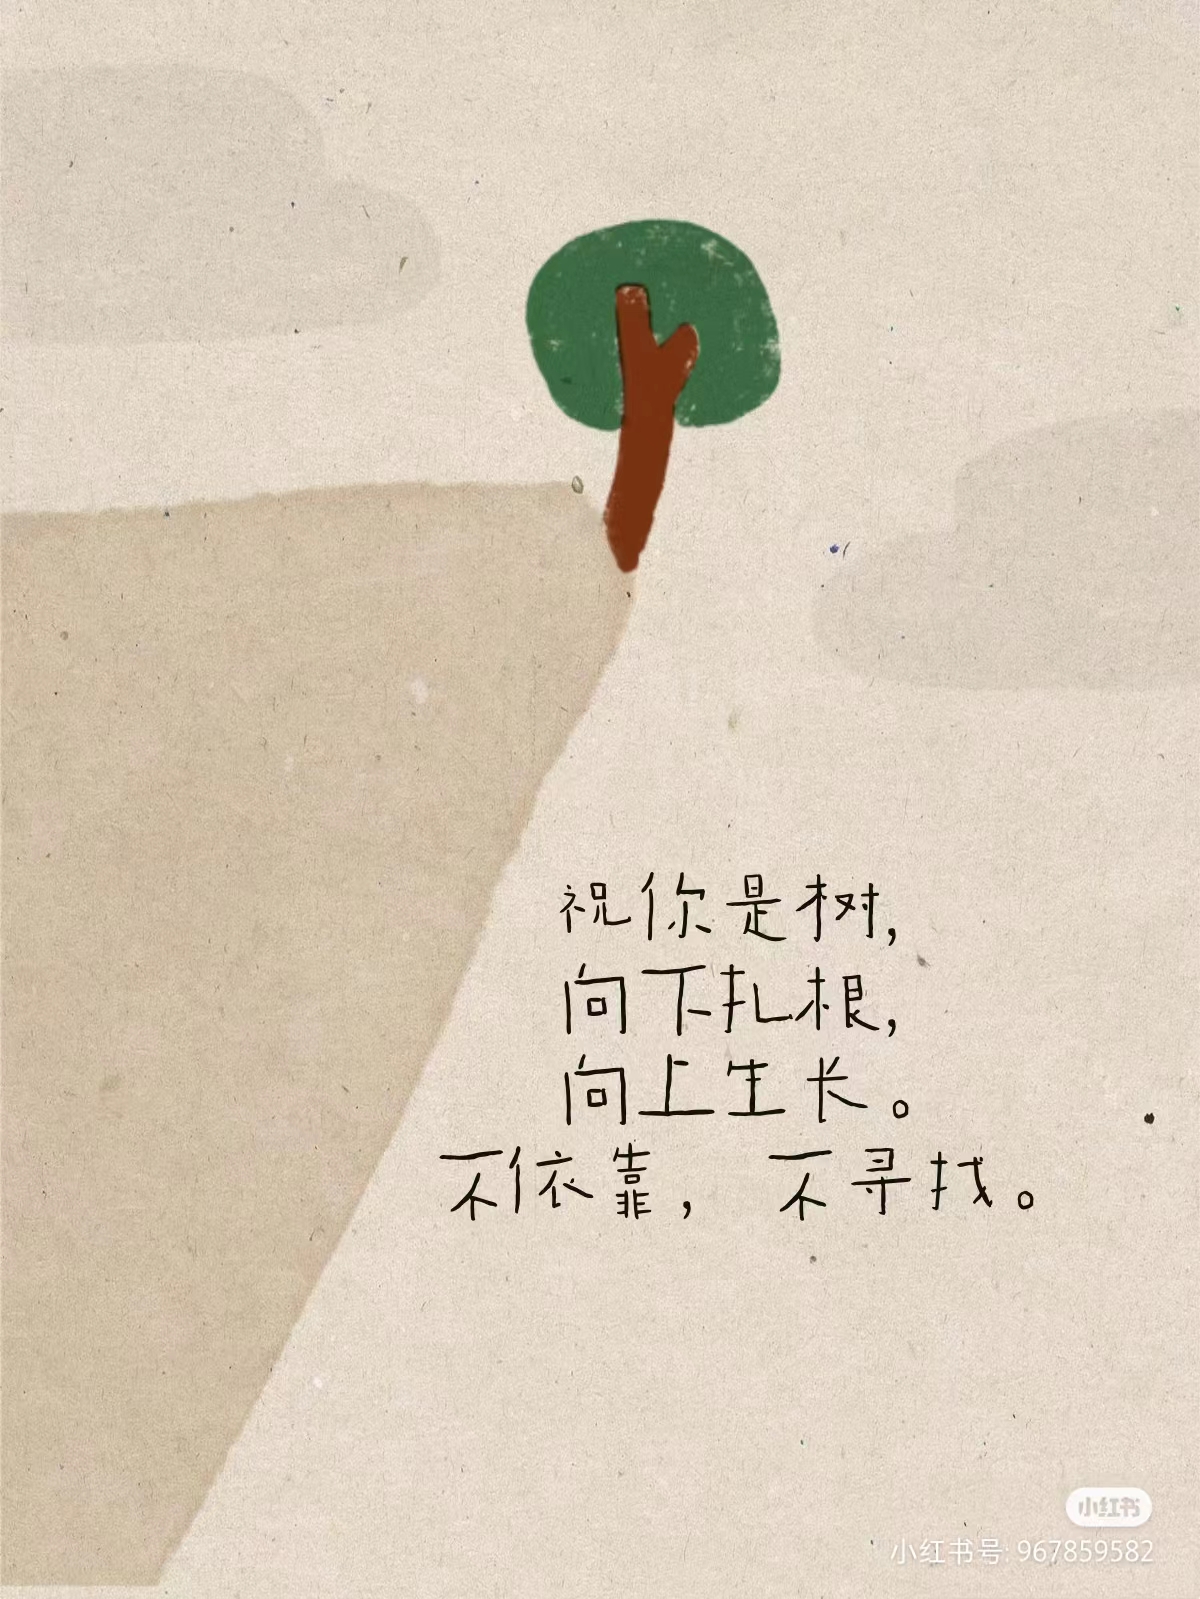 祝你是树,
向下扎根,
向上生长。
不依靠, 不寻找。
小红书
小红书号: 967859582